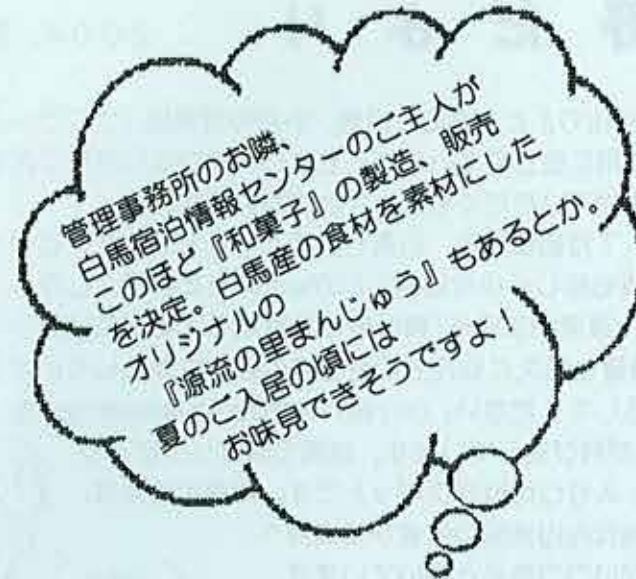 管理事務所のお隣、
白馬宿泊情報センターのご主人が
このほど『和菓子』の製造、販売
を決定。白馬産の食材を素材にした
オリジナルの
『源流の里まんじゅう』もあるとか。
夏のご入居の頃には
お味見できそうですよ！